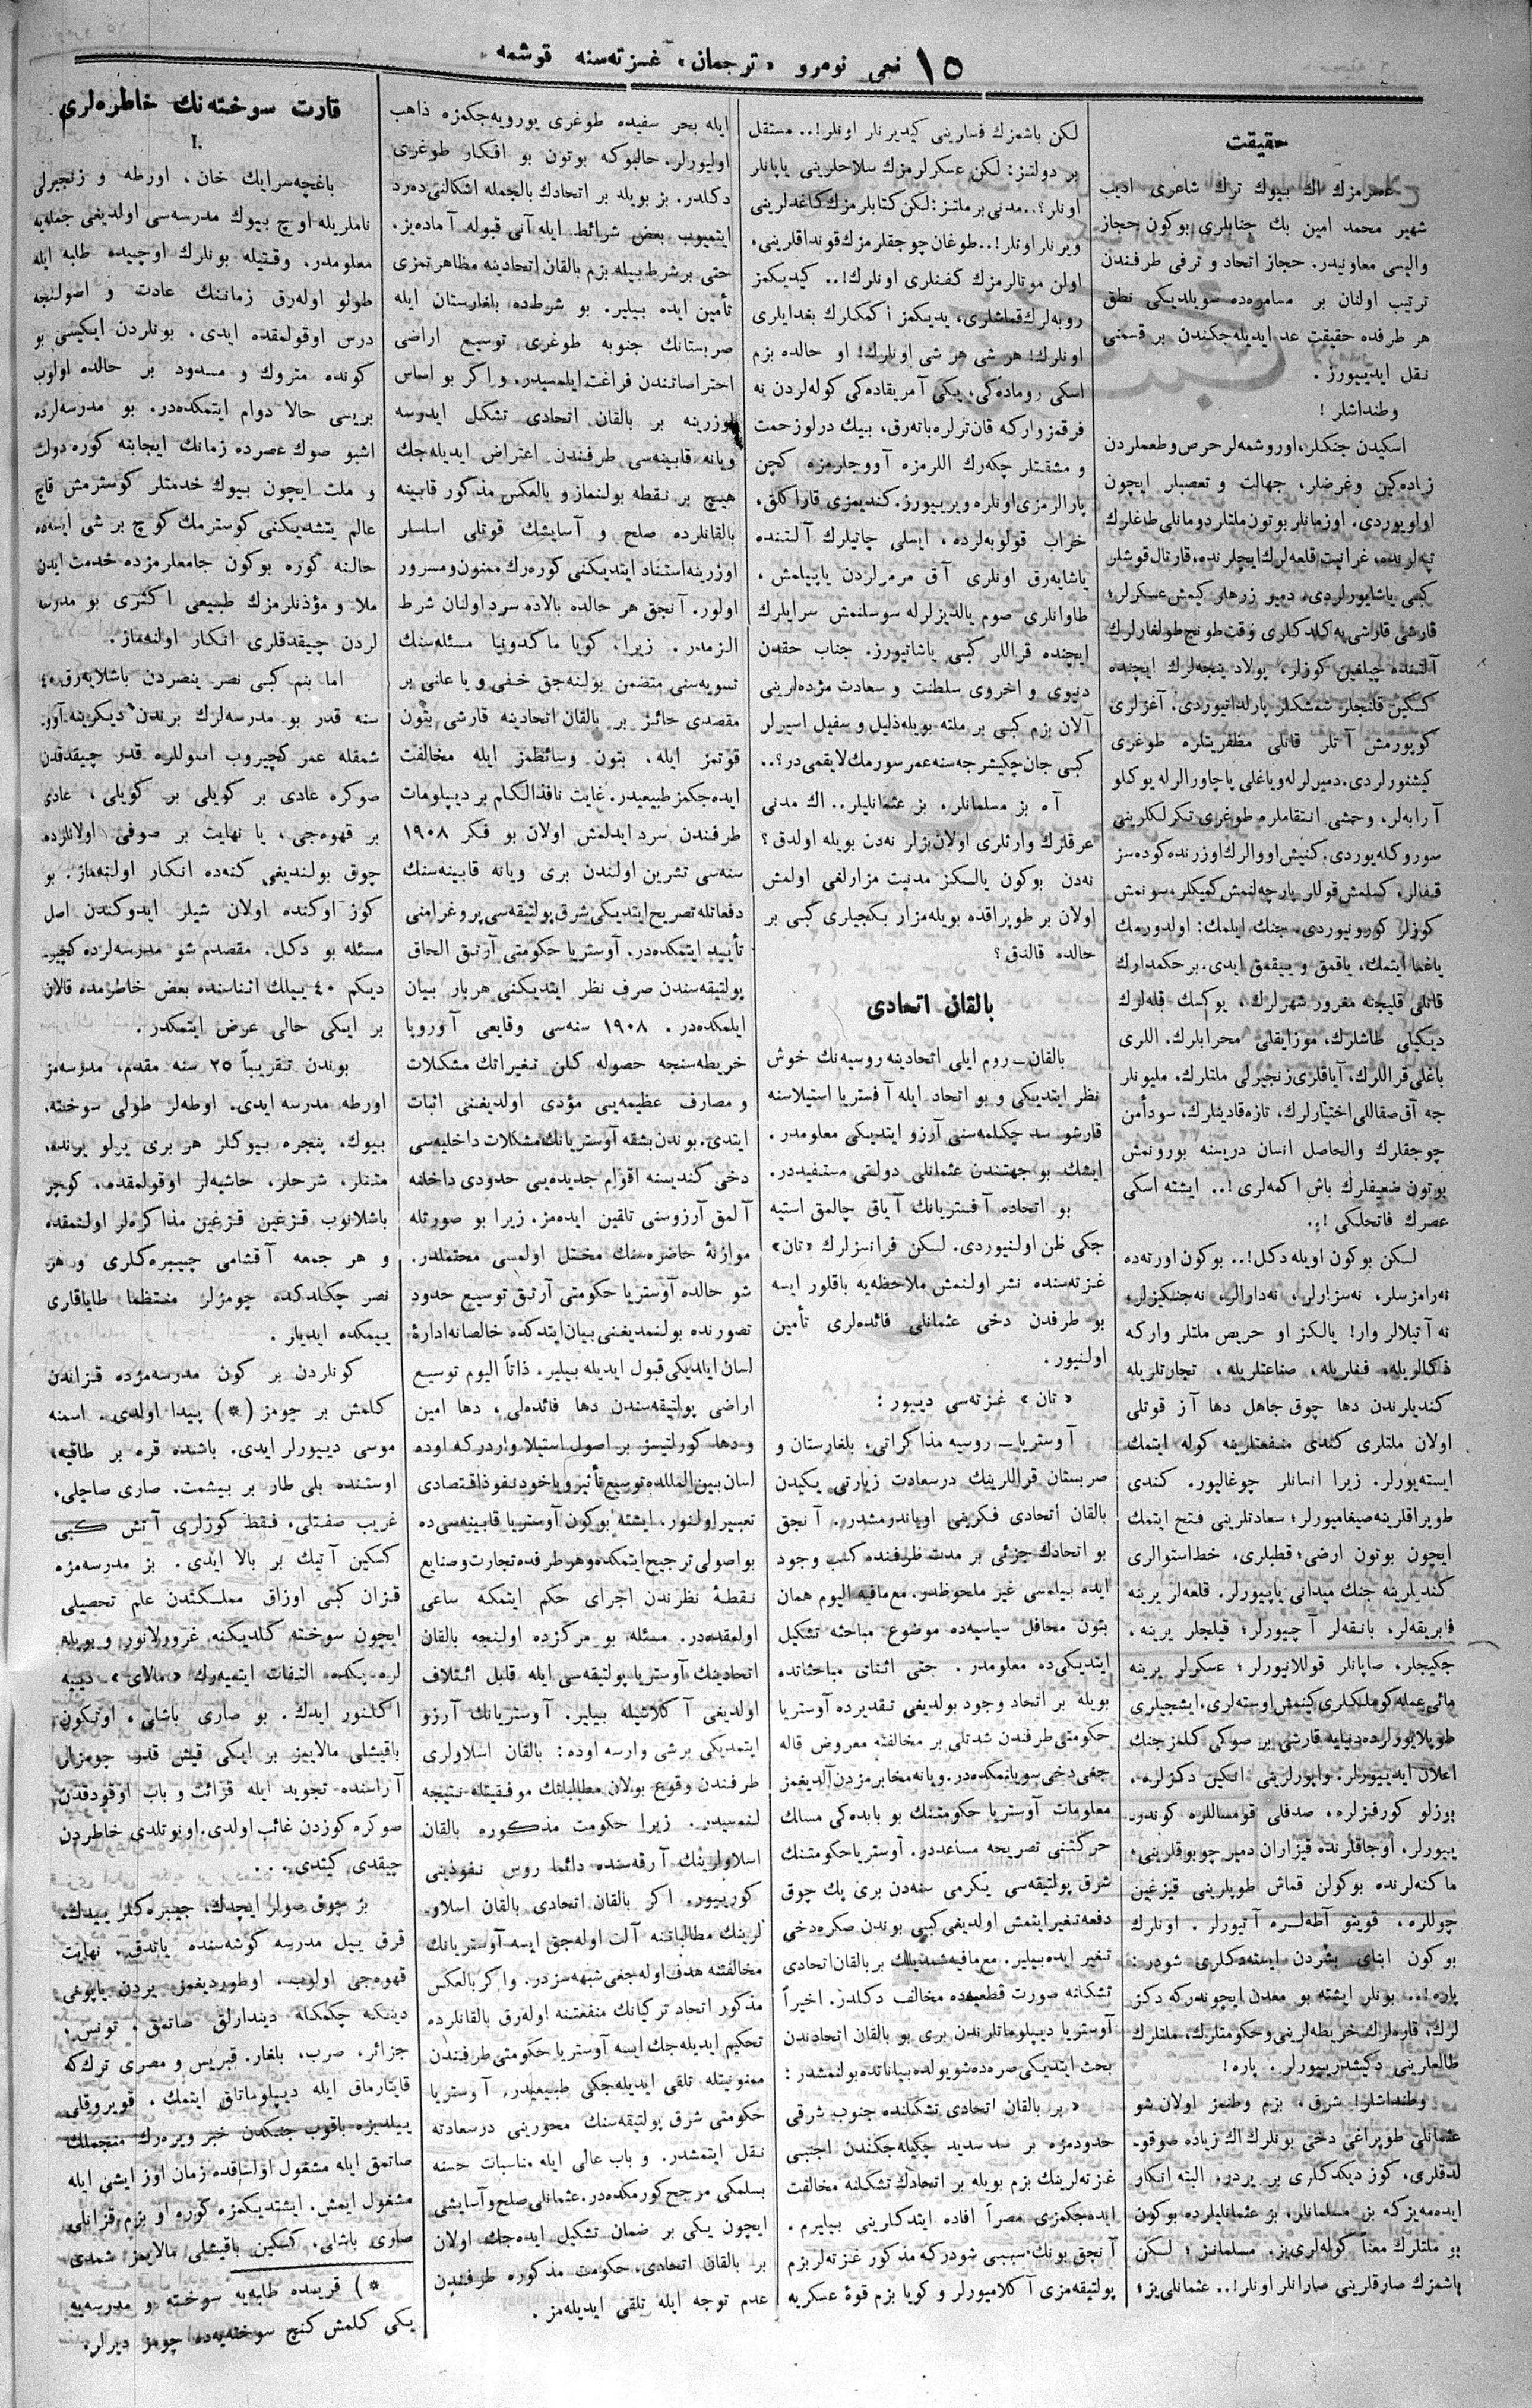 ١٥ نجی نومرو «ترجمان» غزته‌سنه قوشمه
حقیقت
عصرمزك اك بیوك ترك شاعری ادیب
شهیر محمد امین بك جنابلری بوكون حجاز
والیسی معاونیدر. حجاز اتحاد و ترقی طرفندن
ترتیب اولنان بر مسامره‌ده سویلدیكی نطق
هر طرفده حقیقت عد ایدیله‌جكندن بر قسمنی
نقل ایدییورز .
وطنداشلر !
اسكیدن جنكلر، اوروشمه‌لر حرص و طمعلردن
زیاده كین و غرضلر، جهالت و تعصبلر ایچون
اولویوردی. اوزمانلر بوتون ملتلر دومانلی طاغلرك
تپه‌لرنده، غرانیت قلعه‌لرك ایچلرنده، قارتال قوشلر
كبی یاشایورلردی، دمیر زرهلر كیمش عسكرلر؛
قارشی قارشی‌یه كلدكلری وقت طونج طولغارلرك
آلتنده چیلغین كوزلر، پولاد پنجه‌لرك ایچنده
كسكین قلنجلر شمشكلر پارلداتیوردی. آغزلری
كوپورمش آتلر قانلی مظفریتلره طوغری
كیشنورلردی. دمیرلر له و یاغلی پاچاورالر له یوكلو
آرابه‌لر، وحشی انتقاملره طوغری تكرلكلرینی
سوروكله‌یوردی. كنیش اووالرك اوزرنده كوده‌سز
قفالر، كسلمش قوللر پارچه‌لنمش كمیكلر، سونمش
كوزلر كورونیوردی. جنك ایلمك: اولدورمك
یاغما ایتمك، یاقمق و ییقمق ایدی. بر حكمدارك
قانلی قلیجنه مغرور شهرلرك، یوكسك قله‌لرك
دیكیلی طاشلرك، موزایقلی محرابلرك. اللری
باغلی قراللرك، آیاقلری زنجیرلی ملتلرك، ملیونلر
جه آق صقاللی اختیارلرك، تازه قادینلرك، سود أمن
چوجقلرك والحاصل انسان دریسنه بورونمش
بوتون ضعیفلرك باش اكمه‌لری !.. ایشته اسكی
عصرك فاتحلكی !..
لكن بوكون اویله دكل!.. بوكون اورته‌ده
نه‌رامزسلر، نه‌سزارلر، نه‌دارالر، نه‌جنكیزلر،
نه آتیلالر وار! یالكز او حریص ملتلر واركه
ذكالریله، فنلریله، صناعتلریله ، تجارتلریله
كندیلرندن دها چوق جاهل دها آز قوتلی
اولان ملتلری كندی منفعتلرینه كوله ایتمك
ایسته‌یورلر. زیرا انسانلر چوغالیور. كندی
طوپراقلرینه صیغامیورلر؛ سعادتلرینی فتح ایتمك
ایچون بوتون ارضی؛ قطبلری، خط استوالری
كندیلرینه جنك میدانی یاپیورلر. قلعه‌لر یرینه
فابریقه‌لر، بانقه‌لر آچیورلر؛ قیلجلر یرینه ،
جكیجلر، صاپانلر قوللانیورلر؛ عسكرلر یرینه
مائی عمله كوملكلری كیمش اوسته‌لری، ایشجیلری
طوپلایورلر ده دنیایه قارشی بر صوكی كلمز جنك
اعلان ایدییورلر. واپورلرینی انكین دكزلره ،
بوزلو كورفزلره، صدفلی قومساللره كوندر-
ییورلر، اوجاقلرنده قیزاران دمیر چوبوقلرینی،
ماكنه‌لرنده بوكولن قماش طوپلرینی قیزغین
چوللره، قویتو آطه‌لره آتیورلر . اونلرك
بوكون ابنای بشردن ایسته‌دكلری شودر:
پاره!.. بونلر ایشته بو معدن ایچوندركه دكز
لرك، قاره‌لرك خریطه‌لرینی و حكومتلرك، ملتلرك
طالعلرینی دكیشدرییورلر. پاره !
وطنداشلر! شرق، بزم وطنمز اولان شو
عثمانلی طوپراغی دخی بونلرك اك زیاده صوقو-
لدقلری، كوز دیكدكلری بر یردر. البته انكار
ایده‌مه‌یزكه بز مسلمانلر، بز عثمانلیلرده بوكون
بو ملتلرك معناً كوله‌لری‌یز. مسلمانز ؛ لكن
باشمزك صارقلرینی صارانلر اونلر!.. عثمانلی‌یز؛
لكن باشمزك فسارینی كیدیرنلر اونلر!.. مستقل
بر دولتز: لكن عسكرلرمزك سلاحلرینی یاپانلر
اونلر؟.. مدنی بر ملتز: لكن كتابلرمزك كاغدلرینی
ویرنلر اونلر!.. طوغان چوجقلرمزك قونداقلرینی،
اولن موتالرمزك كفنلری اونلرك!.. كیدیكمز
روبه‌لرك قماشلری، یدیكمز أكمكلرك بغدایلری
اونلرك! هر شی هر شی اونلرك! او حالده بزم
اسكی روماده‌كی، یكی آمریقاده‌كی كوله‌لردن نه
فرقمز واركه قان ترلره باته‌رق، بیك درلو زحمت
و مشقتلر چكه‌رك اللرمزه آووجلرمزه كچن
پارالرمزی اونلره ویرییورز. كندیمزی قاراكلق،
خراب قولوبه‌لرده، ایسلی چاتیلرك آلتنده
یاشایه‌رق اونلری آق مرمرلردن یاپیلمش ،
طاوانلری صوم یالدیزلرله سوسلنمش سرایلرك
ایچنده قراللر كبی یاشاتیورز. جناب حقدن
دنیوی و اخروی سلطنت و سعادت مژده‌لرینی
آلان بزم كبی بر ملته بویله ذلیل و سفیل اسیرلر
كبی جان چكیشرجه‌سنه عمر سورمك لایقمی در؟..
آه بز مسلمانلر، بز عثمانلیلر.. اك مدنی
عرقلرك وارثلری اولان بزلر نه‌دن بویله اولدق ؟
نه‌دن بوكون یالكز مدنیت مزارلغی اولمش
اولان بر طوپراقده بویله مزار بكجیلری كبی بر
حالده قالدق ؟
بالقان اتحادی
بالقان ــ روم ایلی اتحادینه روسیه‌نك خوش
نظر ایتدیكی و بو اتحاد ایله آفستریا استیلاسنه
قارشو سد چكلمه‌سنی آرزو ایتدیكی معلومدر .
ایشك بو جهتندن عثمانلی دولتی مستفیددر.
بو اتحاده آفستریانك آیاق چالمق استیه
جكی ظن اولنیوردی. لكن فرانسزلرك «تان»
غزته‌سنده نشر اولنمش ملاحظه‌یه باقلور ایسه
بو طرفدن دخی عثمانلی فائده‌لری تأمین
اولنیور.
« تان » غزته‌سی دییور :
آوستریا ــ روسیه مذاكراتی، بلغارستان و
صربستان قراللرینك درسعادت زیارتی یكیدن
بالقان اتحادی فكرینی اویاندرمشدر. آنجق
بو اتحادك جزئی بر مدت ظرفنده كسب وجود
ایده بیلمسی غیر ملحوظدر. مع‌مافیه الیوم همان
بتون محافل سیاسیه‌ده موضوع مباحثه تشكیل
ایتدیكی‌ده معلومدر . حتی اثنای مباحثاتده
بویله بر اتحاد وجود بولدیغی تقدیرده آوستریا
حكومتی طرفندن شدتلی بر مخالفته معروض قاله
جغی دخی سویلنمكده‌در. ویانه مخابرمزدن آلدیغمز
معلومات آوستریا حكومتنك بو بابده‌كی مسالك
حركتنی تصریحه مساعددر. آوستریا حكومتنك
شرق پولتیقه‌سی یكرمی سنه‌دن بری پك چوق
دفعه تغیر ایتمش اولدیغی كبی بوندن صكره دخی
تغیر ایده بیلیر. مع‌مافیه شمدیلك بر بالقان اتحادی
تشكلنه صورت قطعیه‌ده مخالف دكلدز. اخیراً
آوستریا دیپلوماتلرندن بری بو بالقان اتحادندن
بحث ایتدیكی صره‌ده شو یولده بیاناتده بولنمشدر :
« بر بالقان اتحادی تشكلنده جنوب شرقی
حدودمزه بر سد سدید چكیله‌جكندن اجنبی
غزته‌لرینك بزم بویله بر اتحادك تشكلنه مخالفت
ایده‌جكمزی مصراً افاده ایتدكلرینی بیلیرم .
آنجق بونك سببی شودركه مذكور غزته‌لر بزم
پولتیقه‌مزی آكلامیورلر و كویا بزم قوۀ عسكریه
ایله بحر سفیده طوغری یورویه‌جكمزه ذاهب
اولیورلر. حالبوكه بوتون بو افكار طوغری
دكلدر. بز بویله بر اتحادك بالجمله اشكالنی ده‌رد
ایتمیوب بعض شرائط ایله آنی قبوله آماده‌یز.
حتی بر شرط بیله بزم بالقان اتحادینه مظاهرتمزی
تأمین ایده بیلیر. بو شرط‌ده بلغارستان ایله
صربستانك جنوبه طوغری توسیع اراضی
احتراصاتندن فراغت ایلمسیدر. و اكر بو اساس
اوزرینه بر بالقان اتحادی تشكل ایدرسه
ویانه قابینه‌سی طرفندن اعتراض ایدیله‌جك
هیچ بر نقطه بولنماز و بالعكس مذكور قابینه
بالقانلرده صلح و آسایشك قوتلی اسلسلر
اوزرینه استناد ایتدیكنی كوره‌رك ممنون و مسرور
اولور. آنجق هر حالده بالاده سرد اولنان شرط
الزمدر. زیرا، كویا ماكدونیا مسئله‌سنك
تسویه‌سنی متضمن بولنه‌جق خفی و یا علنی بر
مقصدی حائز بر بالقان اتحادینه قارشی بتون
قوتمز ایله، بتون وسائطمز ایله مخالفت
ایده‌جكمز طبیعیدر. غایت نافذ الكلام بر دیپلومات
طرفندن سرد ایدلمش اولان بو فكر ١٩٠٨
سنه‌سی تشرین اولندن بری ویانه قابینه‌سنك
دفعاتله تصریح ایتدیكی شرق پولتیقه‌سی پروغرامنی
تأیید ایتمكده‌در. آوستریا حكومتی آرتق الحاق
پولتیقه‌سندن صرف نظر ایتدیكنی هر بار بیان
ایلمكده‌در . ١٩٠٨ سنه‌سی وقایعی آوروپا
خریطه‌سنجه حصوله كلن تغیراتك مشكلات
و مصارف عظیمه‌یی مؤدی اولدیغنی اثبات
ایتدی. بوندن بشقه آوستریانك مشكلات داخلیه‌سی
دخی كندیسنه اقوام جدیده‌یی حدودی داخلنه
آلمق آرزوسنی تلقین ایده‌مز. زیرا بو صورتله
موازنۀ حاضره‌سنك مختل اولمسی محتملدر.
شو حالده آوستریا حكومتی آرتق توسیع حدود
تصورنده بولنمدیغنی بیان ایتدكده خالصانه ادارۀ
لسان ایلدیكی قبول ایدیله بیلیر. ذاتاً الیوم توسیع
اراضی پولتیقه‌سندن دها فائده‌لی، دها امین
و دها كورلتیسز بر اصول استیلا واردركه اوده
لسان بین‌المللده توسیع تأثیر و یاخود نفوذ اقتصادی
تعبیر اولنور. ایشته بوكون آوستریا قابینه‌سی‌ده
بو اصولی ترجیح ایتمكده و هر طرفده تجارت و صنایع
نقطۀ نظرندن اجرای حكم ایتمكه ساعی
اولمقده‌در. مسئله بو مركزده اولنجه بالقان
اتحادینك آوستریا پولتیقه‌سی ایله قابل ائتلاف
اولدیغی آكلاشیله بیلیر. آوستریانك آرزو
ایتمدیكی برشی وارسه اوده: بالقان اسلاولری
طرفندن وقوع بولان مطالباتك موفقیتله نتیجه
لنمسیدر. زیرا حكومت مذكوره بالقان
اسلاولرینك آرقه‌سنده دائما روس نفوذینی
كورییور. اكر بالقان اتحادی بالقان اسلاو-
لرینك مطالباتنه آلت اوله‌جق ایسه آوستریانك
مخالفتنه هدف اوله‌جغی شبهه‌سزدر. و اكر بالعكس
مذكور اتحاد تركیانك منفعتنه اوله‌رق بالقانلرده
تحكیم ایدیله‌جك ایسه آوستریا حكومتی طرفندن
ممنونیتله تلقی ایدیله‌جكی طبیعیدر. آوستریا
حكومتی شرق پولتیقه‌سنك محورینی درسعادته
نقل ایتمشدر. و باب عالی ایله مناسبات حسنه
بسلمكی مرجح كورمكده‌در. عثمانلی صلح و آسایشی
ایچون یكی بر ضمان تشكیل ایده‌جك اولان
بر بالقان اتحادی، حكومت مذكوره طرفندن
عدم توجه ایله تلقی ایدیله‌مز .
قارت سوخته‌نك خاطره‌لری
I.
باغچه‌سرایك خان، اورطه و زنجیرلی
ناملریله اوچ بیوك مدرسه‌سی اولدیغی جمله‌یه
معلومدر. وقتیله بونلرك اوچیده طلبه ایله
طولو اوله‌رق زماننك عادت و اصولنجه
درس اوقولمقده ایدی. بونلردن ایكیسی بو
كونده متروك و مسدود بر حالده اولوب
بریسی حالا دوام ایتمكده‌در. بو مدرسه‌لرده
اشبو صوك عصرده زمانك ایجابنه كوره دولت
و ملت ایچون بیوك خدمتلر كوسترمش قاچ
عالم یتشدیكنی كوسترمك كوچ بر شی ایسه‌ده
حالنه كوره بوكون جامعلرمزده خدمت ایدن
ملا و مؤذنلرمزك طبیعی اكثری بو مدرسه
لردن چیقدقلری انكار اولنه‌ماز.
اما بنم كبی نصر ینصردن باشلایه‌رق ٤٠
سنه قدر بو مدرسه‌لرك برندن دیكرینه آور-
شمقله عمر كچیروب اسوللره قدر چیقدقدن
صوكره عادی بر كویلی بر كویلی، عادی
بر قهوه‌جی، یا نهایت بر صوفی اولانلرده
چوق بولندیغی كنه‌ده انكار اولنه‌ماز. بو
كوز اوكنده اولان شیلر ایدوكندن اصل
مسئله بو دكل. مقصدم شو مدرسه‌لرده كچیر-
دیكم ٤٠ ییلك اثناسنده بعض خاطرمده قالان
بر ایكی حالی عرض ایتمكدر.
بوندن تقریباً ٢٥ سنه مقدم، مدرسه‌مز
اورطه مدرسه ایدی. اوطه‌لر طولی سوخته.
بیوك، پنجره بیوكلر هر بری یرلو یرنده.
متنلر، شرحلر، حاشیه‌لر اوقولمقده، كوچر
باشلانوب قزغین قزغین مذاكره‌لر اولنمقده
و هر جمعه آقشامی چیبره‌كلری و هر
نصر چكلدكده چومزلر منتظما طایاقاری
ییمكده ایدیلر .
كونلردن بر كون مدرسه‌مزده قزاندن
كلمش بر چومز (*) پیدا اولدی. اسمنه
موسی دییورلر ایدی. باشنده قره بر طاقیه،
اوستنده بلی طار بر بیشمت. صاری صاچلی،
غریب صفتلی، فقط كوزلری آتش كبی
كسكین آتیك بر بالا ایدی. بز مدرسه‌مزه
قزان كبی اوزاق مملكتدن علم تحصیلی
ایچون سوخته كلدیكنه غرورلانور و بویله
لره پكده التفات ایتمیه‌رك «مالای» دییه
اكلنور ایدك. بو صاری باشلی، اوتكون
باقیشلی مالایمز بر ایكی قیش قدر چومزلر
آراسنده تجوید ایله قرائت و باب اوقودقدن
صوكره كوزدن غائب اولدی. اونوتلدی خاطردن
چیقدی كیتدی. . .
بز چوق صولر ایچدك، چیبره‌كلر ییدك.
قرق ییل مدرسه كوشه‌سنده یاتدق. نهایت
قهوه‌جی اولوب، اوطوردیغمز یردن یاپونی
دینكه چكمكله دیندارلق صاتمق، تونس،
جزائر، صرب، بلغار، قبریس و مصری ترك‌كه
قایتارماق ایله دیپلوماتلق ایتمك، قویروقلی
ییلدیزه باقوب جنكدن خبر ویره‌رك منجملك
صاتمق ایله مشغول اولساقده زمان اوز ایشی ایله
مشغول ایمش. ایشتدیكمزه كوره او بزم قزانلی
صاری باشلی، كسكین باقیشلی مالایمز شمدی
*) قریمده طلبه‌یه سوخته و مدرسه‌یه
یكی كلمش كنج سوخته‌یه‌ده چومز دیرلر.